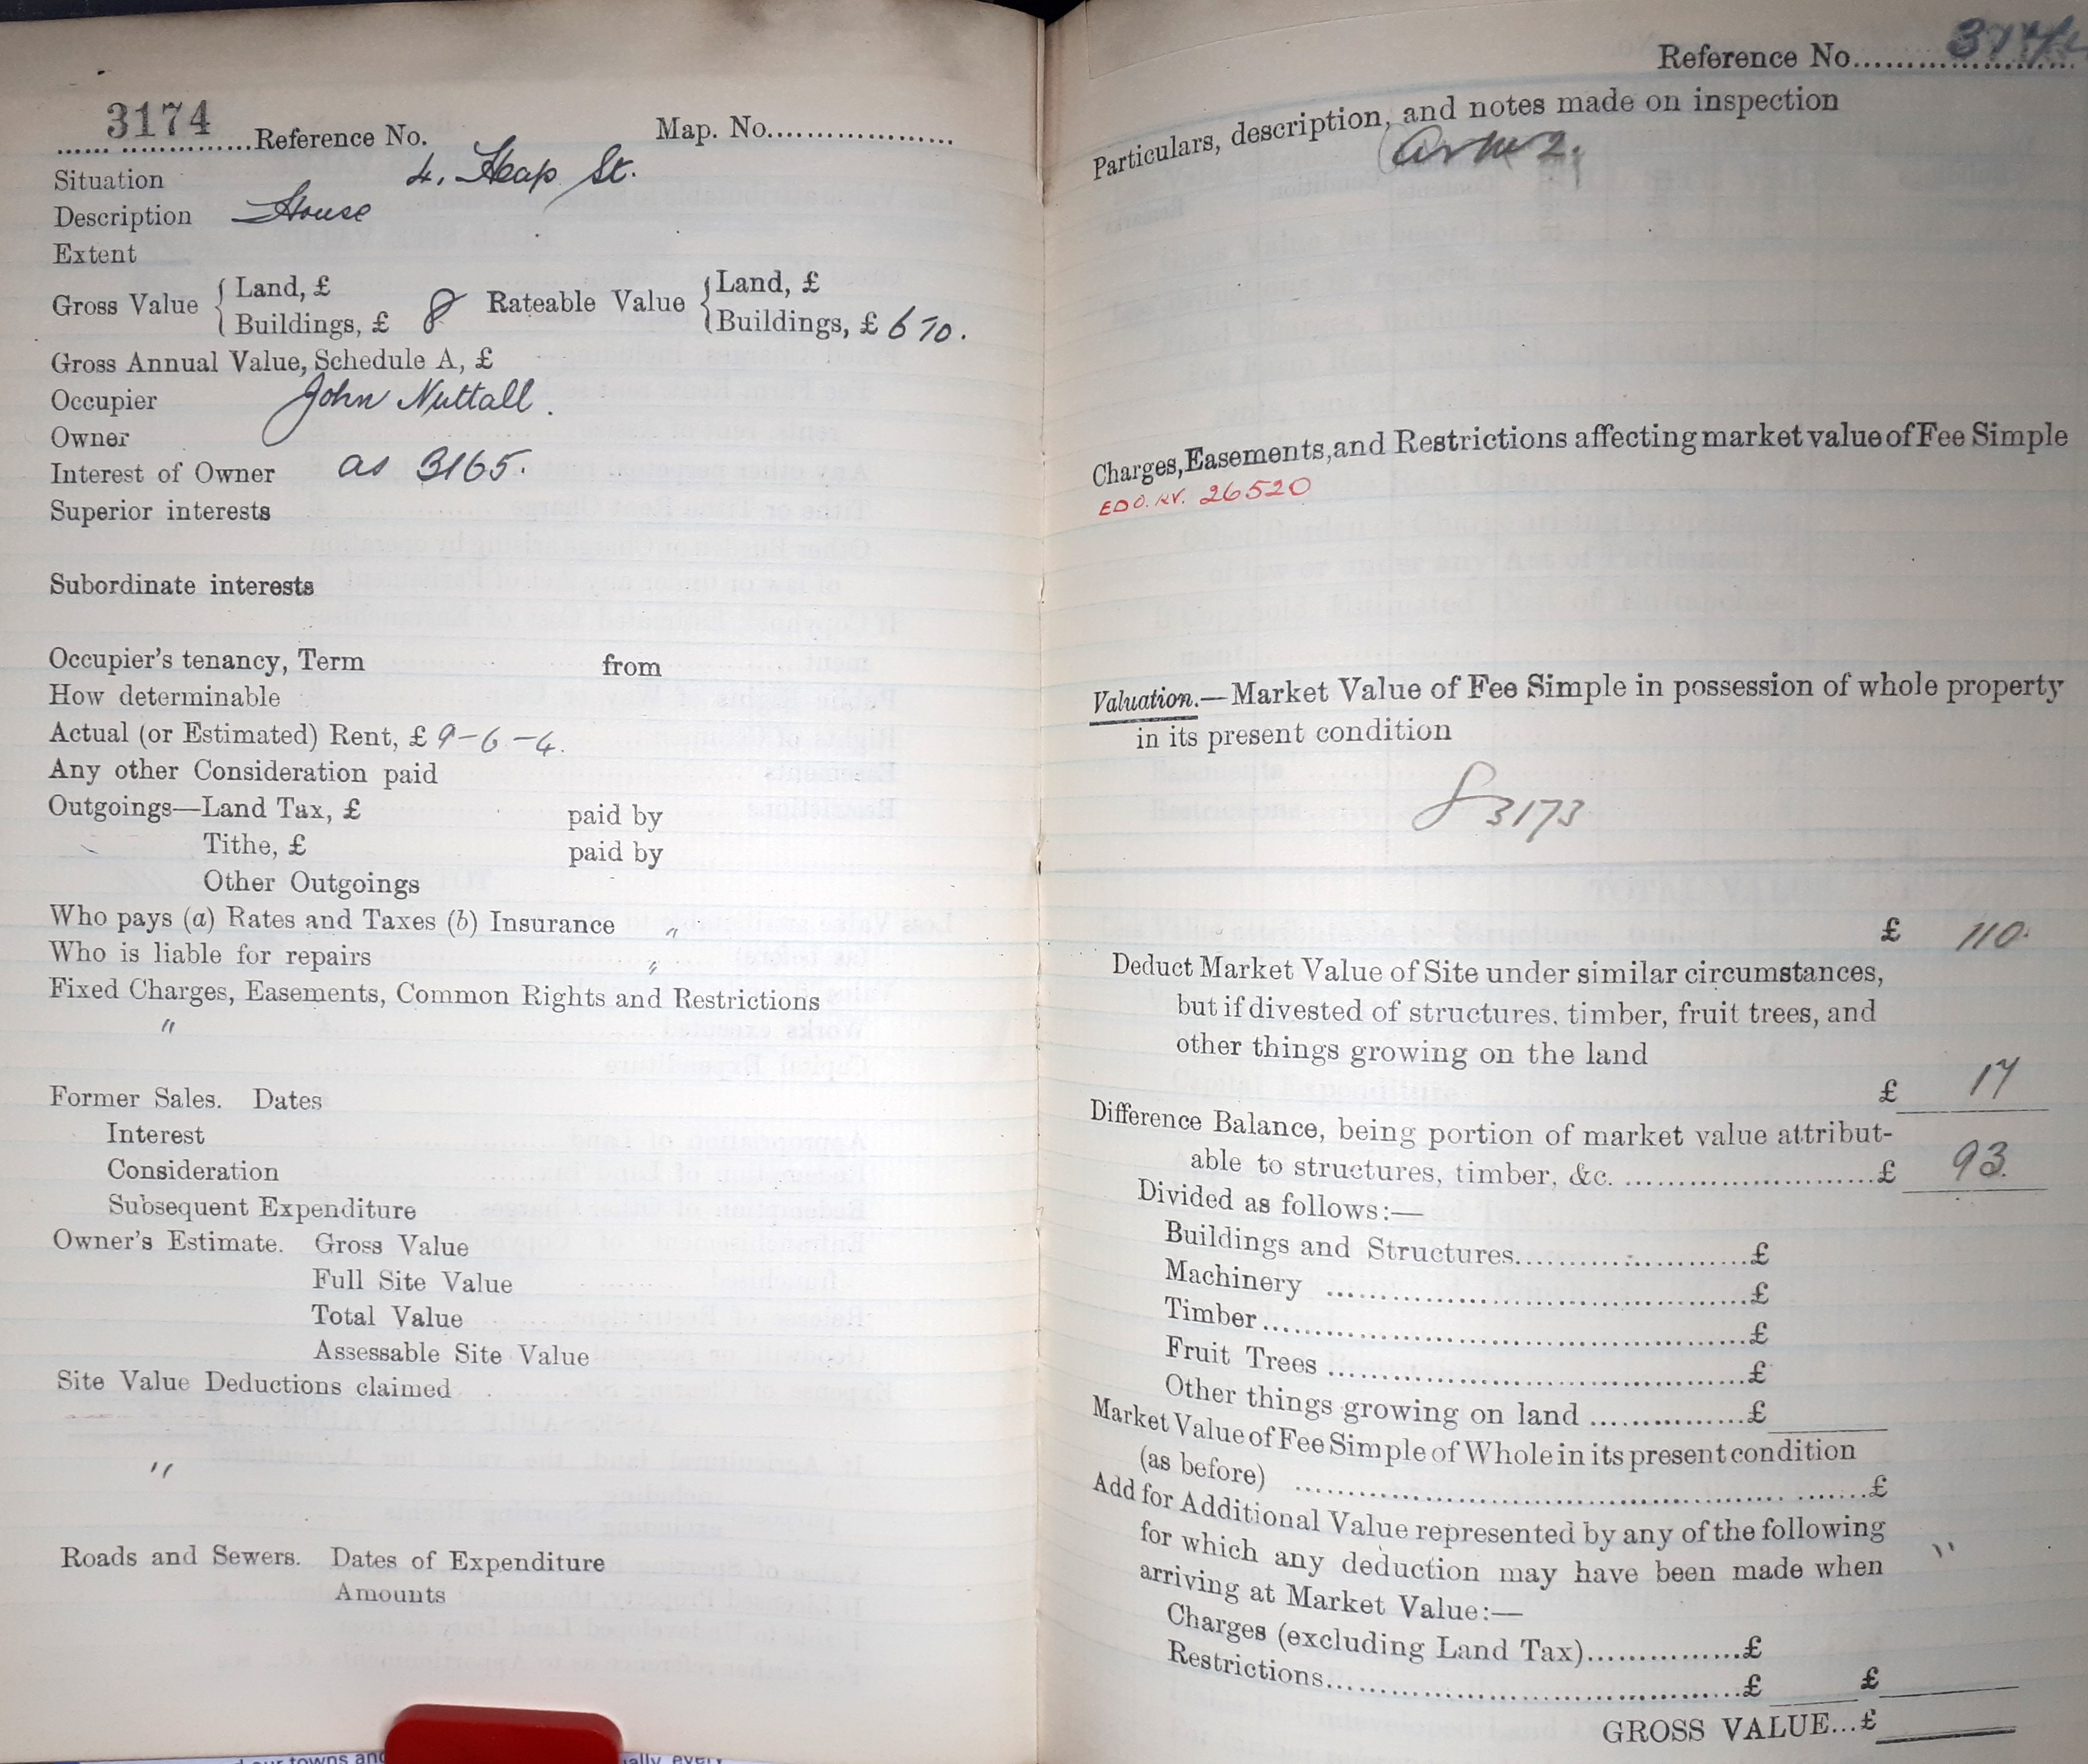 3174
Reference No. Map. No.
Situation 4, Heap St.
Description House
Extent
Gross Value { Land, £
Buildings, £ 8 Rateable Value { Land, £
Buildings, £ 6 10.
Gross Annual Value, Schedule A, £
Occupier John Nuttall.
Owner
Interest of Owner as 3165.
Superior interests
Subordinate interests
Occupier's tenancy, Term from
How determinable
Actual (or Estimated) Rent, £ 9-6-4.
Any other Consideration paid
Outgoings—Land Tax, £ paid by
Tithe, £ paid by
Other Outgoings
Who pays (a) Rates and Taxes (b) Insurance "
Who is liable for repairs "
Fixed Charges, Easements, Common Rights and Restrictions
"
Former Sales. Dates
Interest
Consideration
Subsequent Expenditure
Owner's Estimate. Gross Value
Full Site Value
Total Value
Assessable Site Value
Site Value Deductions claimed
"
Roads and Sewers. Dates of Expenditure
Amounts
Reference No. 3174
Particulars, description, and notes made on inspection
Charges, Easements, and Restrictions affecting market value of Fee Simple
EDO. RV. 26520
Valuation.—Market Value of Fee Simple in possession of whole property
in its present condition
3173
£ 110.
Deduct Market Value of Site under similar circumstances,
but if divested of structures, timber, fruit trees, and
other things growing on the land
£ 17
Difference Balance, being portion of market value attribut-
able to structures, timber, &c. £ 93.
Divided as follows:—
Buildings and Structures £
Machinery £
Timber £
Fruit Trees £
Other things growing on land £
Market Value of Fee Simple of Whole in its present condition
(as before) £
Add for Additional Value represented by any of the following
for which any deduction may have been made when "
arriving at Market Value:—
Charges (excluding Land Tax) £
Restrictions £ £
GROSS VALUE...£